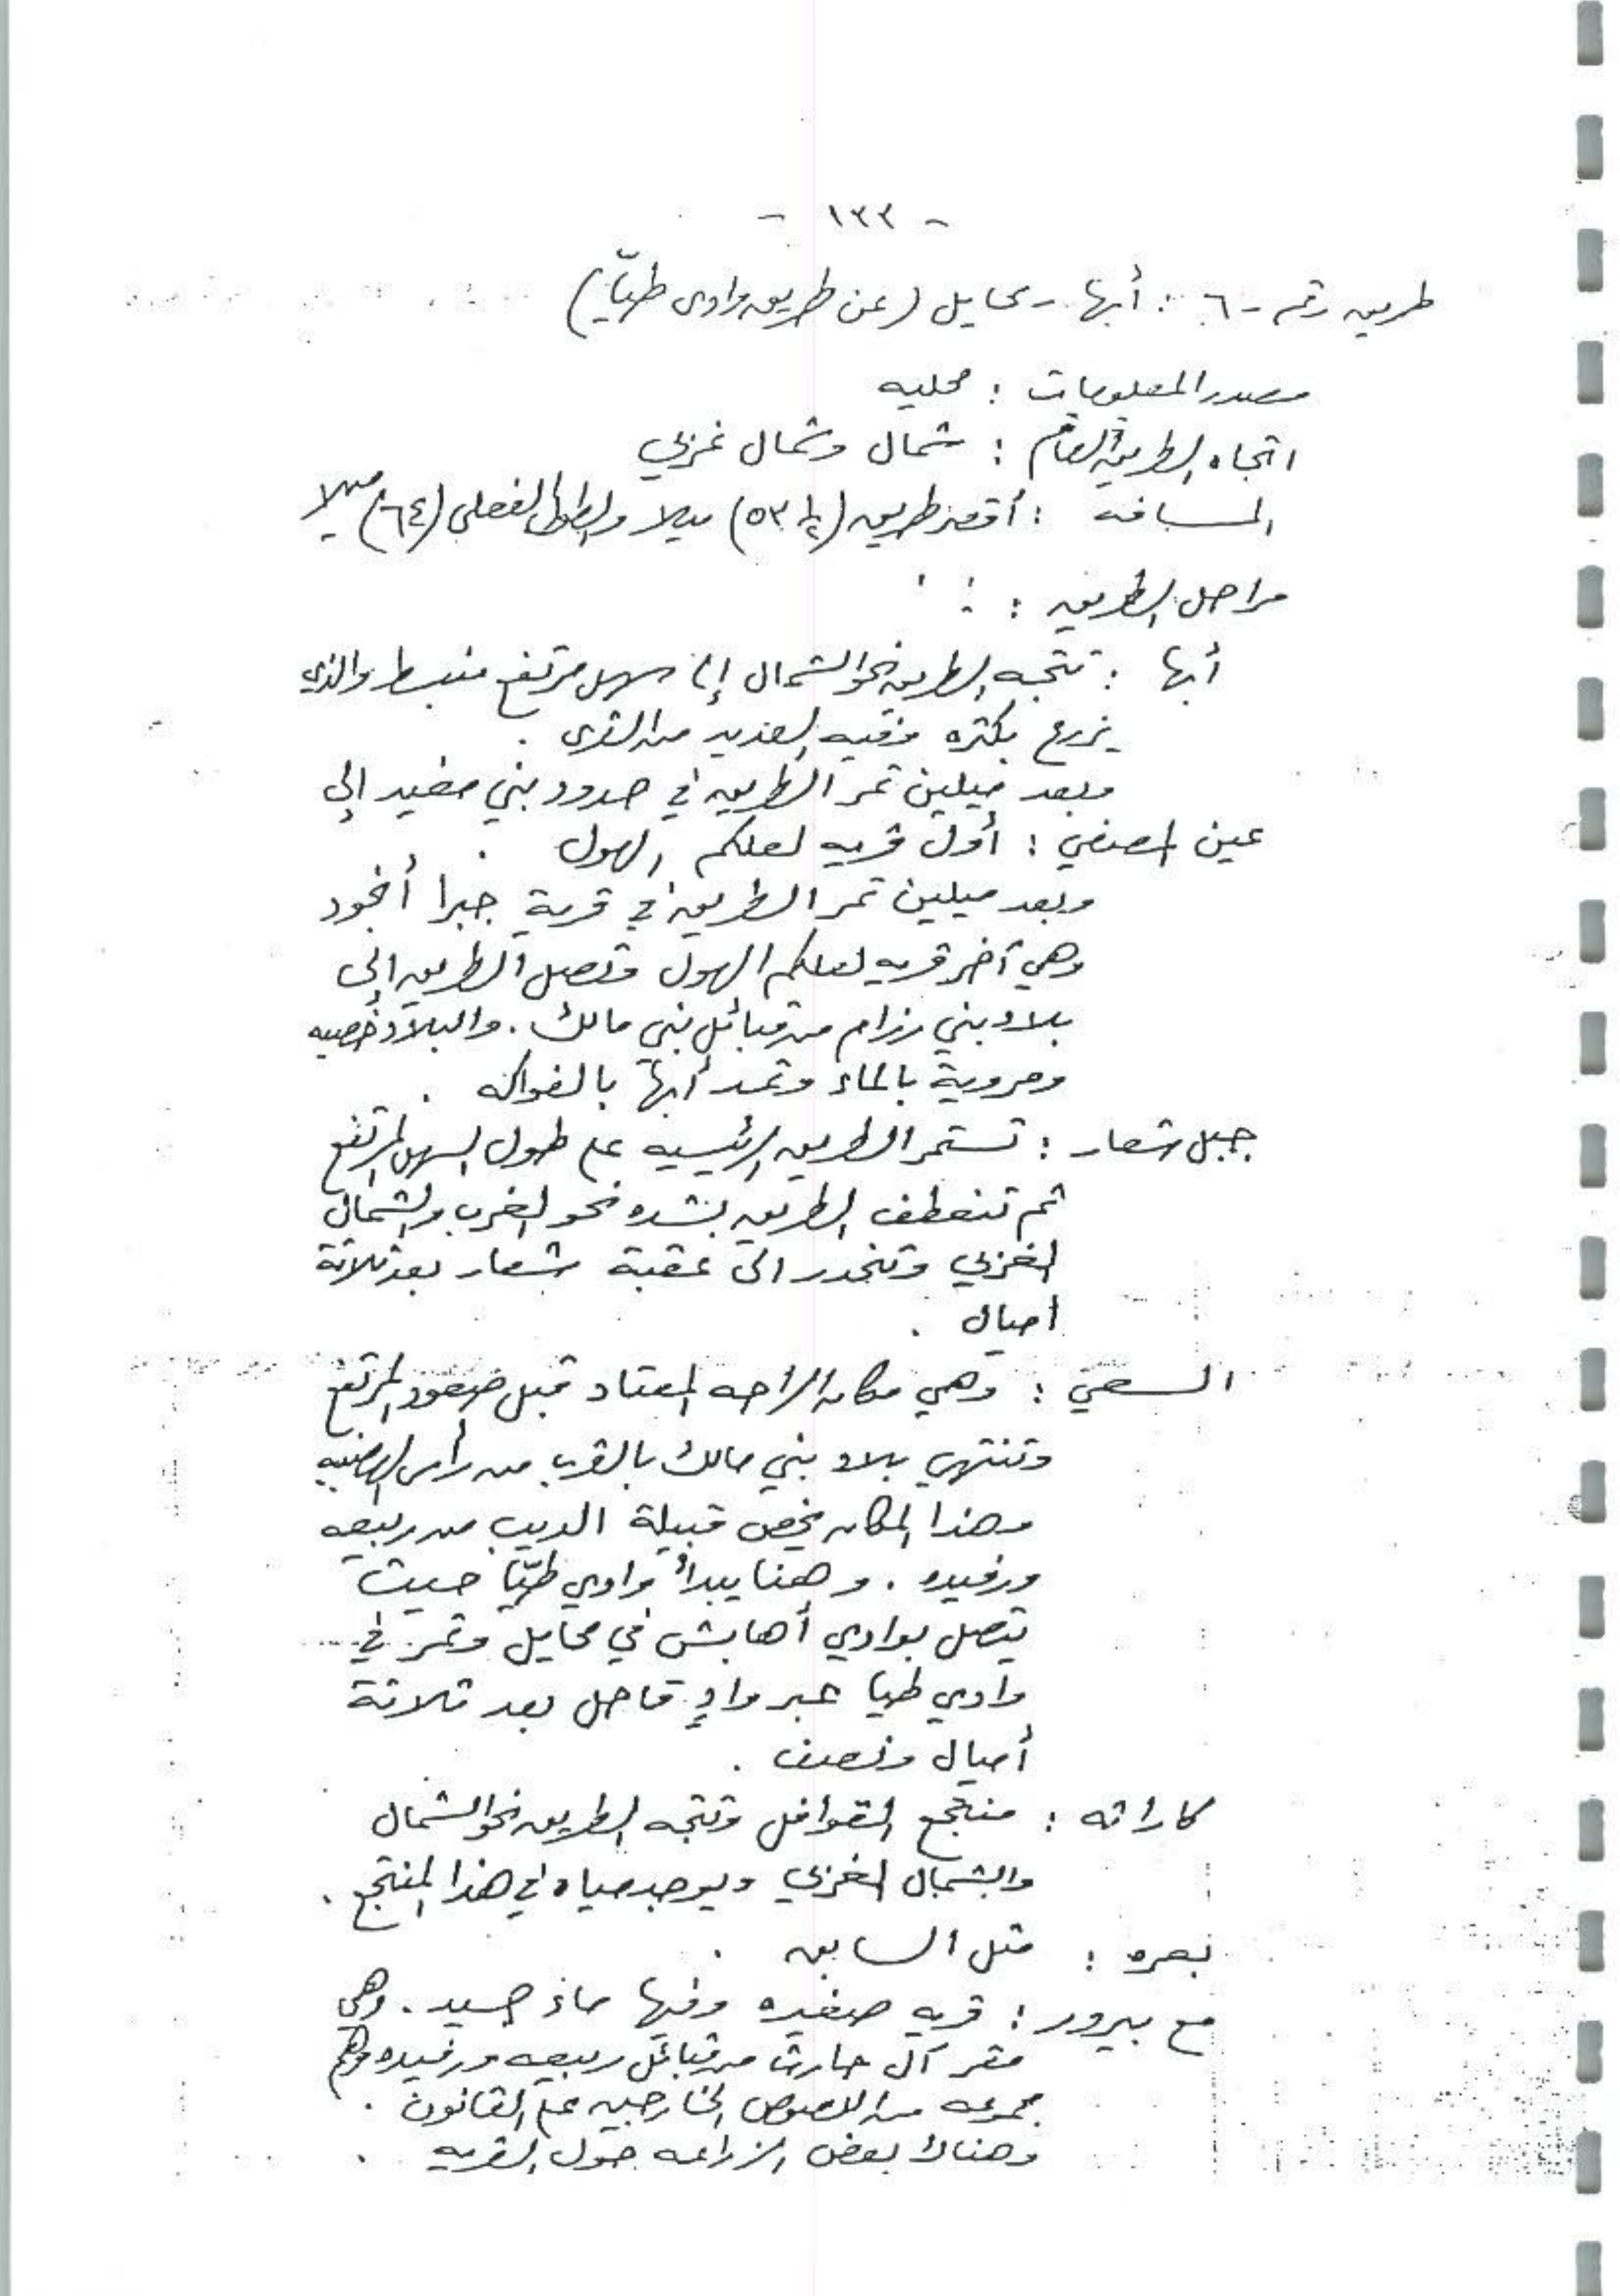 - ١٣٣ -
طريق رقم - ٦ : أبها - محايل (عن طريق وادى طيّا)
مصدر المعلومات : محليه
اتجاه الطريق العام : شمال وشمال غربي
المسافة : أقصر طريق (½ ٥٣) ميلا والطول الفعلى (٦٤) ميلا
مراحل الطريق :
أبها : تتجه الطريق نحو الشمال إلى سهل مرتفع منبسط والذي
يزرع بكثره وفيه العديد من القرى .
وبعد ميلين تمر الطريق في حدود بني مغيد إلى
عين المصفي : أول قريه لعلكم الهول .
وبعد ميلين تمر الطريق في قرية جبرا أنجود
وهي آخر قريه لعلكم الهول وتصل الطريق إلى
بلاد بني رزام من قبائل بني مالك . والبلاد خصبه
ومروية بالماء وتمد أبها بالفواكه .
جبل شعار : تستمر الطريق الرئيسيه على طول السهل المرتفع
ثم تنعطف الطريق بشده نحو الغرب والشمال
الغربي وتنحدر الى عقبة شعار بعد ثلاثة
اميال .
السعي : وهي مكان الراحه المعتاد قبل صعود المرتفع
وتنتهي بلاد بني مالك بالقرب من رأس الهضبه
وهذا المكان يخص قبيلة الديب من ربيعه
ورفيده . وهنا يبدأ وادي طيّا حيث
يتصل بوادي أهابش في محايل وتمر في
وادي طيا عبر وادٍ قاحل بعد ثلاثة
أميال ونصف .
كاراته : منتجع القوافل وتتجه الطريق نحو الشمال
والشمال الغربي ويوجد مياه في هذا المنتجع .
نعره : مثل السابق .
مع بيرور : قريه صغيره وفيها ماء جيد . وهي
مقر آل حارث من قبائل ربيعه ورفيده وهم
مجموعه من اللصوص الخارجيه على القانون .
وهناك بعض الزراعه حول القريه .